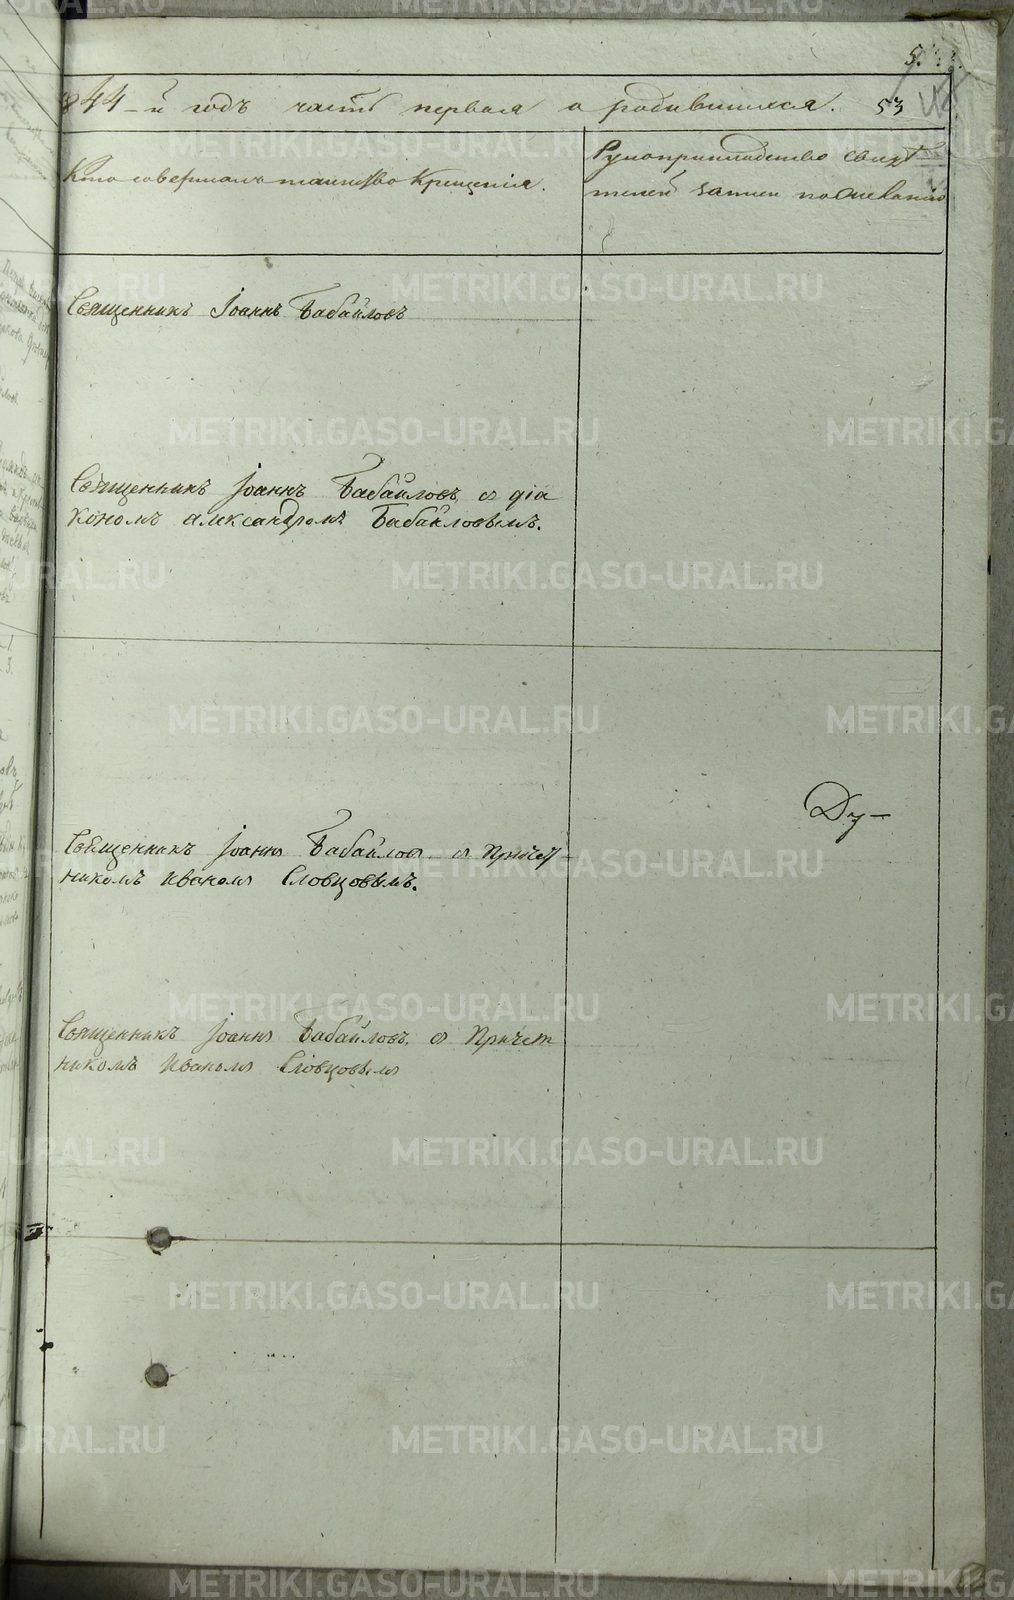 53
844-й годъ часть первая о родившихся.
Кто совершалъ таинство Крещенія.
Рукоприкладство свидѣ
телей записи по желанію
Священникъ Іоаннъ Бабайловъ
Священникъ Іоаннъ Бабайловъ, съ діа
кономъ александромъ Бабайловымъ.
Ду-
Священникъ Іоаннъ Бабайловъ, съ Причет-
никомъ Иваномъ Словцовымъ.
Священникъ Іоаннъ Бабайловъ, съ Причет
никомъ Иваномъ Словцовымъ
METRIKI.GASO-URAL.RU